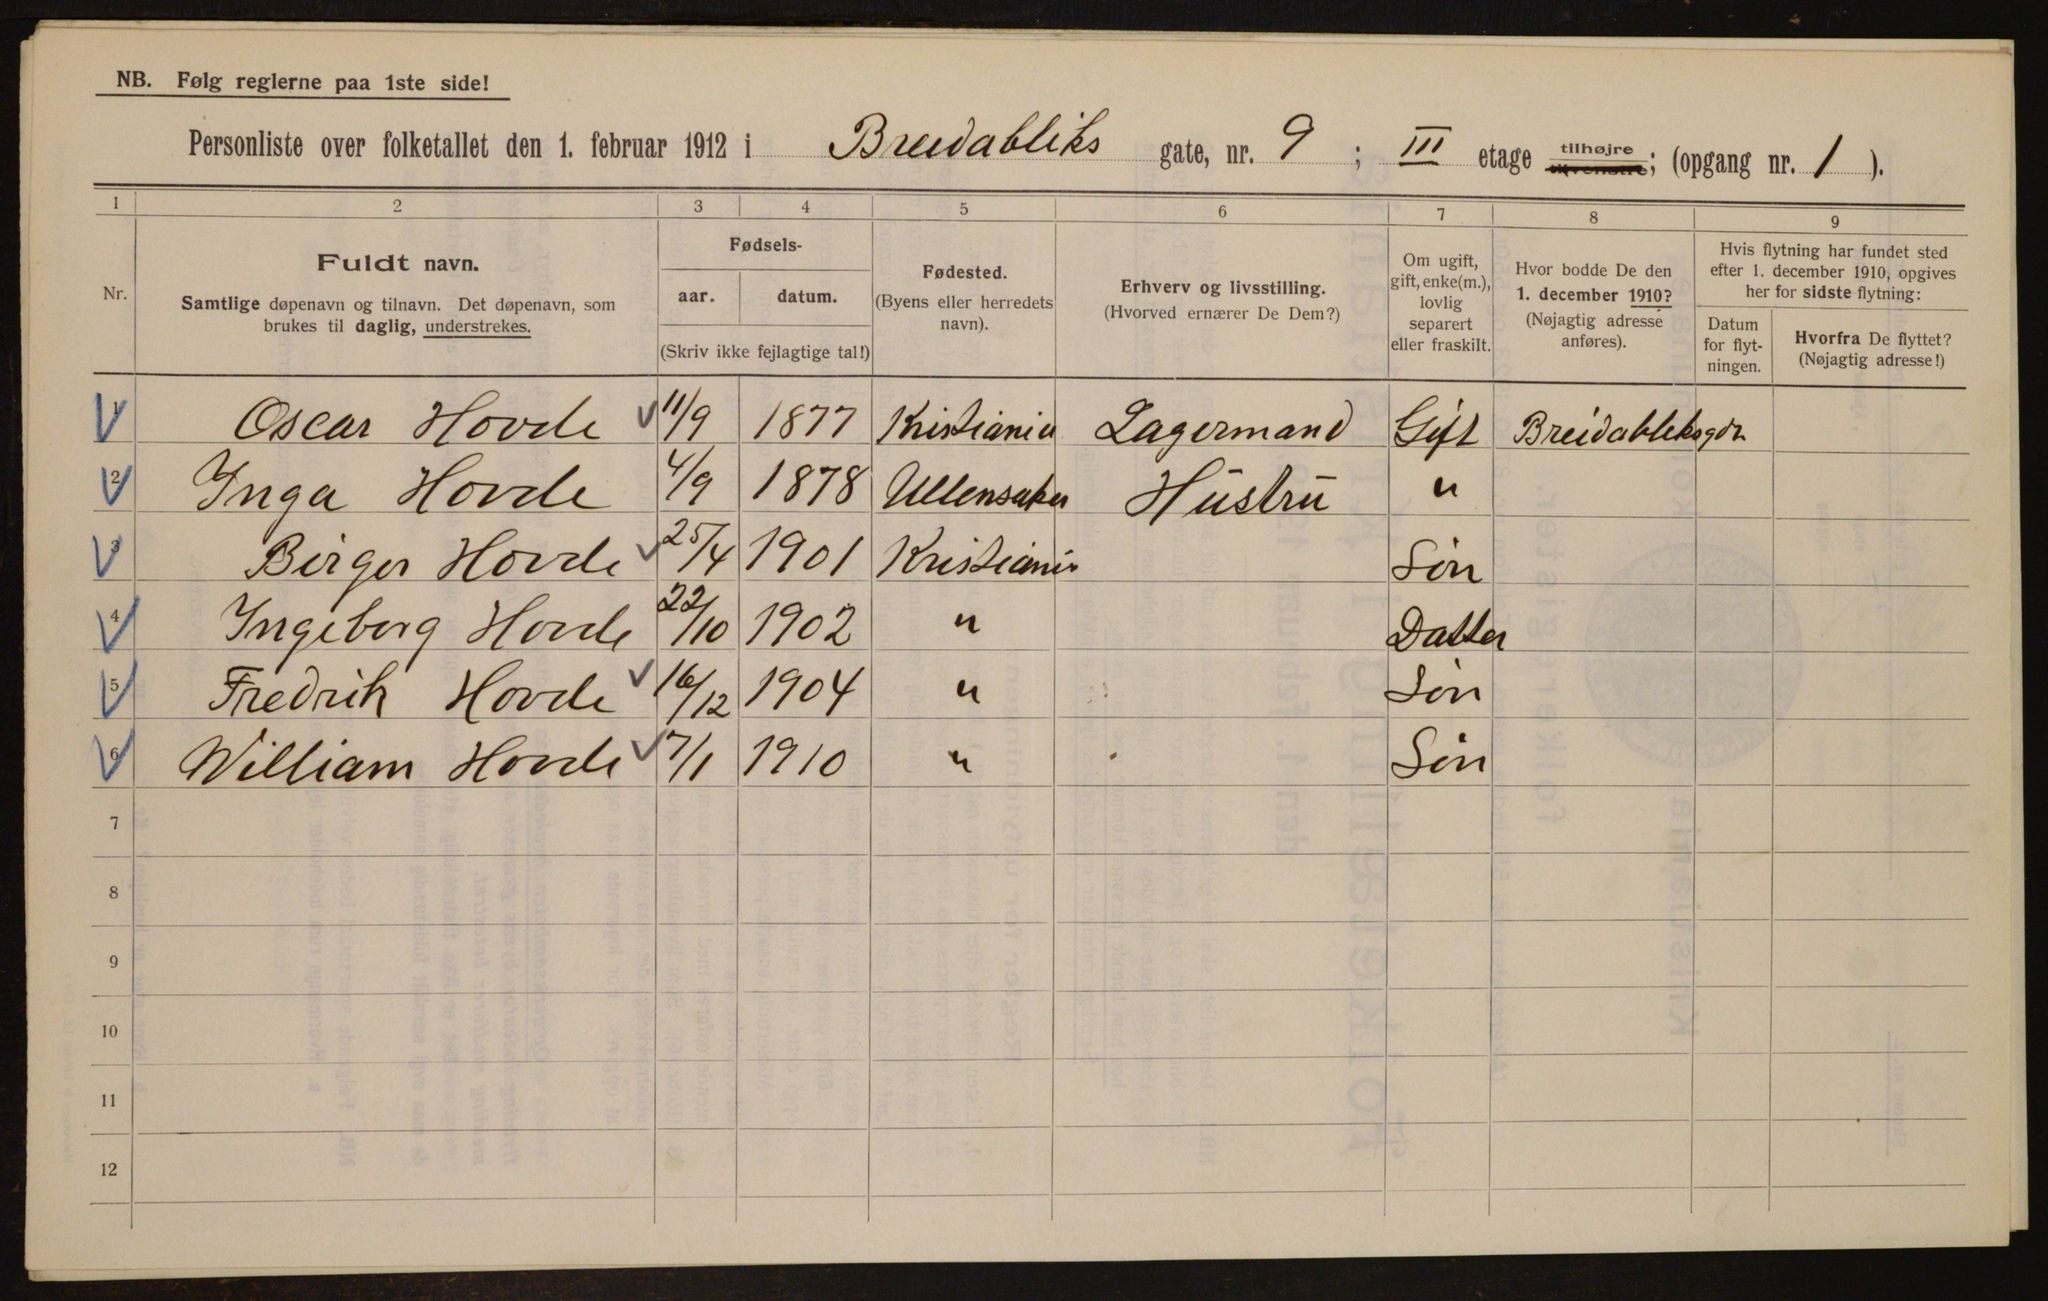 NB. Følg reglerne paa 1ste side!
Personliste over folketallet den 1. februar 1912 i Breidabliks gate, nr. 9 ; III etage tilhøjre tilvenstre; (opgang nr. 1 ).
1 2 3 4 5 6 7 8 9
Nr.
Fuldt navn.
Samtlige døpenavn og tilnavn. Det døpenavn, som
brukes til daglig, understrekes.
Fødsels-
aar. datum.
(Skriv ikke fejlagtige tal!)
Fødested.
(Byens eller herredets
navn).
Erhverv og livsstilling.
(Hvorved ernærer De Dem?)
Om ugift,
gift, enke(m.),
lovlig
separert
eller fraskilt.
Hvor bodde De den
1. december 1910?
(Nøjagtig adresse
anføres).
Hvis flytning har fundet sted
efter 1. december 1910, opgives
her for sidste flytning:
Datum
for flyt-
ningen.
Hvorfra De flyttet?
(Nøjagtig adresse!)
1 Oscar Hovde 11/9 1877 Kristiania Lagermand Gift Breidabliksgdn
2 Inga Hovde 4/9 1878 Ullensaker Hustru "
3 Birger Hovde 25/4 1901 Kristiania Søn
4 Ingeborg Hovde 22/10 1902 " Datter
5 Fredrik Hovde 16/12 1904 " Søn
6 William Hovde 7/1 1910 " Søn
7
8
9
10
11
12